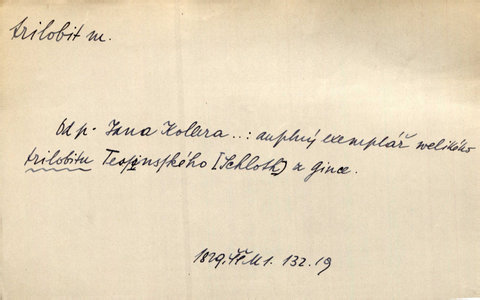 trilobit m.
Od p. Jana Kollara ..: auplný exemplář welikého
trilobitu [Schloth] z Gince.
1829. ČČM 1. 132. 19